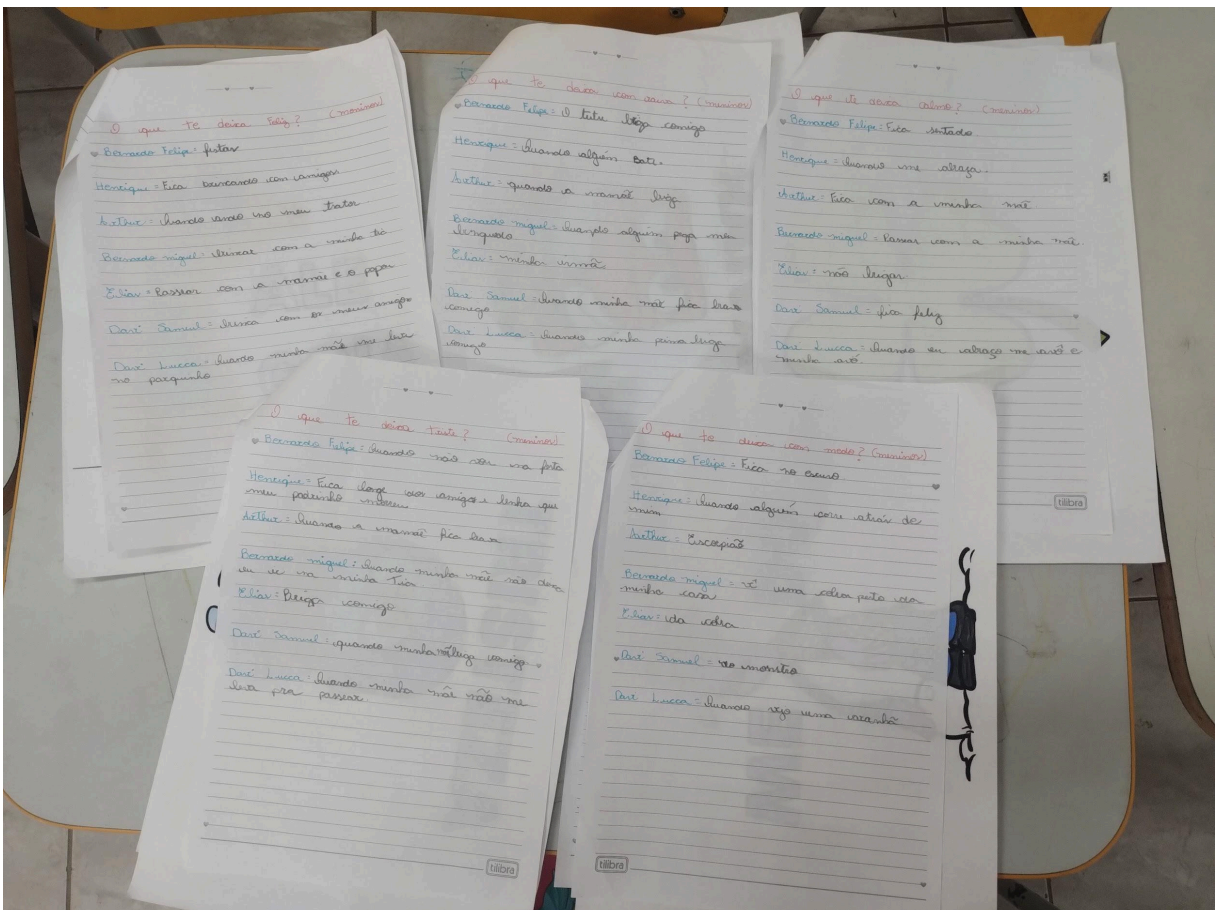 O que te deixa feliz? (meninos)
Bernardo Felipe = festas
Henrique = Fica brincando com amigos
Arthur = Quando ando no meu trator
Bernardo miguel = brincar com a minha tia
Elias = Passear com a mamãe e o papai
Davi Samuel = brinca com os meus amigos
Davi Lucca = Quando minha mãe me leva
no parquinho
O que te deixa com raiva? (meninos)
Bernardo Felipe = O tutu briga comigo
Henrique = Quando alguém bati.
Arthur = quando a mamãe briga
Bernardo miguel = Quando alguém pega meu
brinquedo
Elias = minha irmã.
Davi Samuel = Quando minha mãe fica brava
comigo
Davi Lucca = Quando minha prima briga
comigo
O que te deixa calmo? (meninos)
Bernardo Felipe = Fica sentado
Henrique = Quando me abraça.
Arthur = Fica com a minha mãe
Bernardo miguel = Passear com a minha mãe
Elias = não brigar
Davi Samuel = fica feliz
Davi Lucca = Quando eu abraço meu avô e
minha avó
tilibra
O que te deixa triste? (meninos)
Bernardo Felipe = Quando não vou na festa
Henrique = Fica longe dos amigos e que
meu padrinho morreu
Arthur = Quando a mamãe fica brava
Bernardo miguel = Quando minha mãe não deixa
eu ir na minha Tia.
Elias = Briga comigo
Davi Samuel = quando minha mãe briga comigo
Davi Lucca = Quando minha mãe não me
leva pra passear.
tilibra
O que te deixa com medo? (meninos)
Bernardo Felipe = Fica no escuro
Henrique = Quando alguém corre atrás de
mim
Arthur = Escorpião
Bernardo miguel = vê uma cobra perto da
minha casa
Elias = da cobra
Davi Samuel = do monstro
Davi Lucca = Quando vejo uma aranha
tilibra